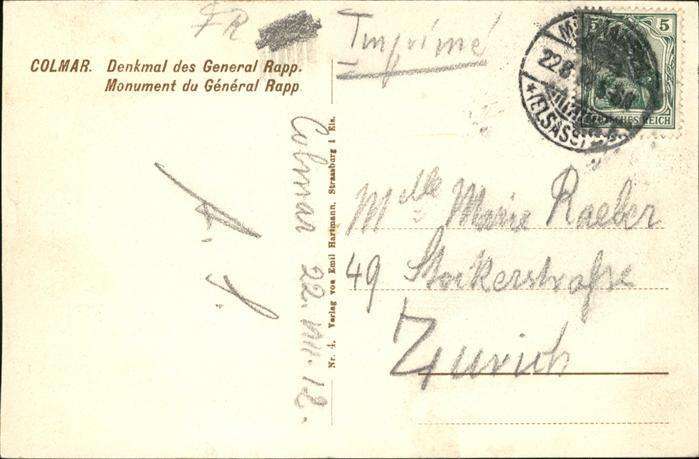 FR
Imprimé
COLMAR. Denkmal des General Rapp.
Monument du Général Rapp
5
DEUTSCHES REICH
(ELSASS)
Colmar 22. VIII. 12.
Nr. 4. Verlag von Emil Hartmann, Strassburg i Els.
Mlle Marie Raeber
49 Stockerstrasse
Zurich